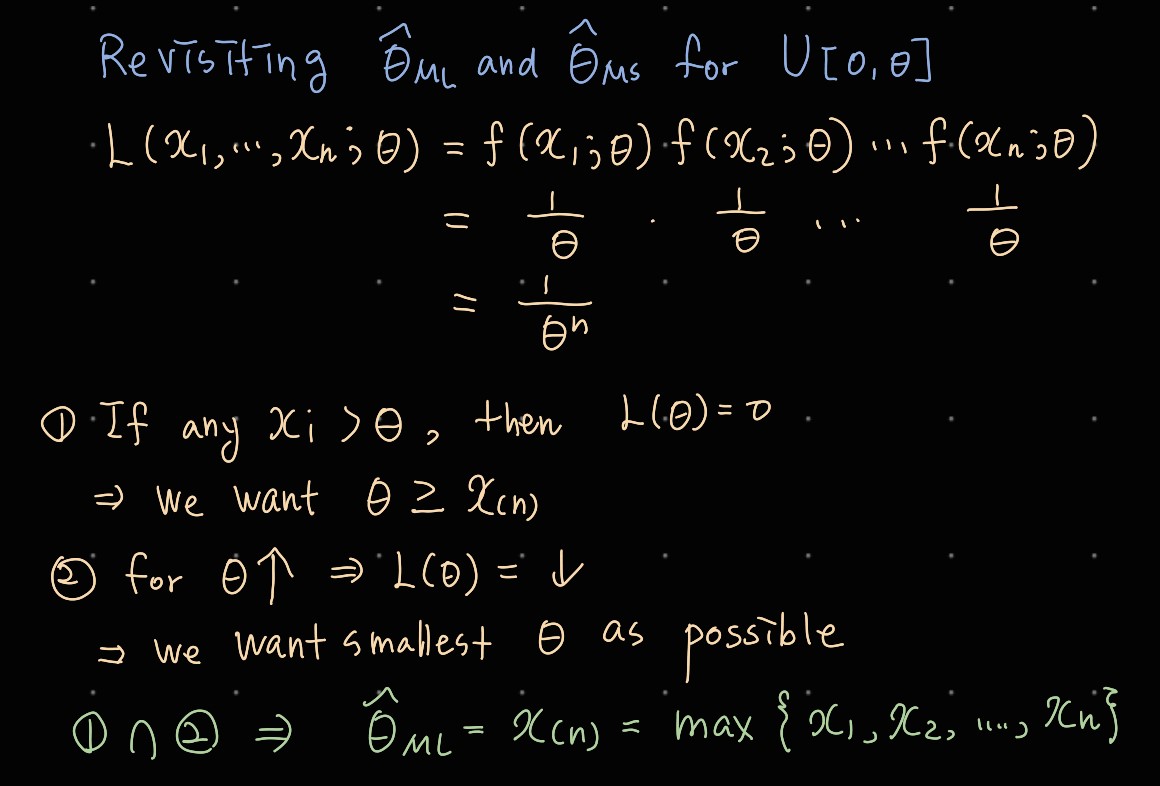 Revisiting θ̂ML and θ̂MS for U[0,θ]
L(x1,...,xn;θ) = f(x1;θ) f(x2;θ) ... f(xn;θ)
= 1/θ · 1/θ ... 1/θ
= 1/θ^n
① If any xi > θ, then L(θ)=0
⇒ we want θ ≥ x(n)
② for θ↑ ⇒ L(θ) = ↓
⇒ we want smallest θ as possible
① ∩ ② ⇒ θ̂ML = x(n) = max {x1, x2, ...., xn}